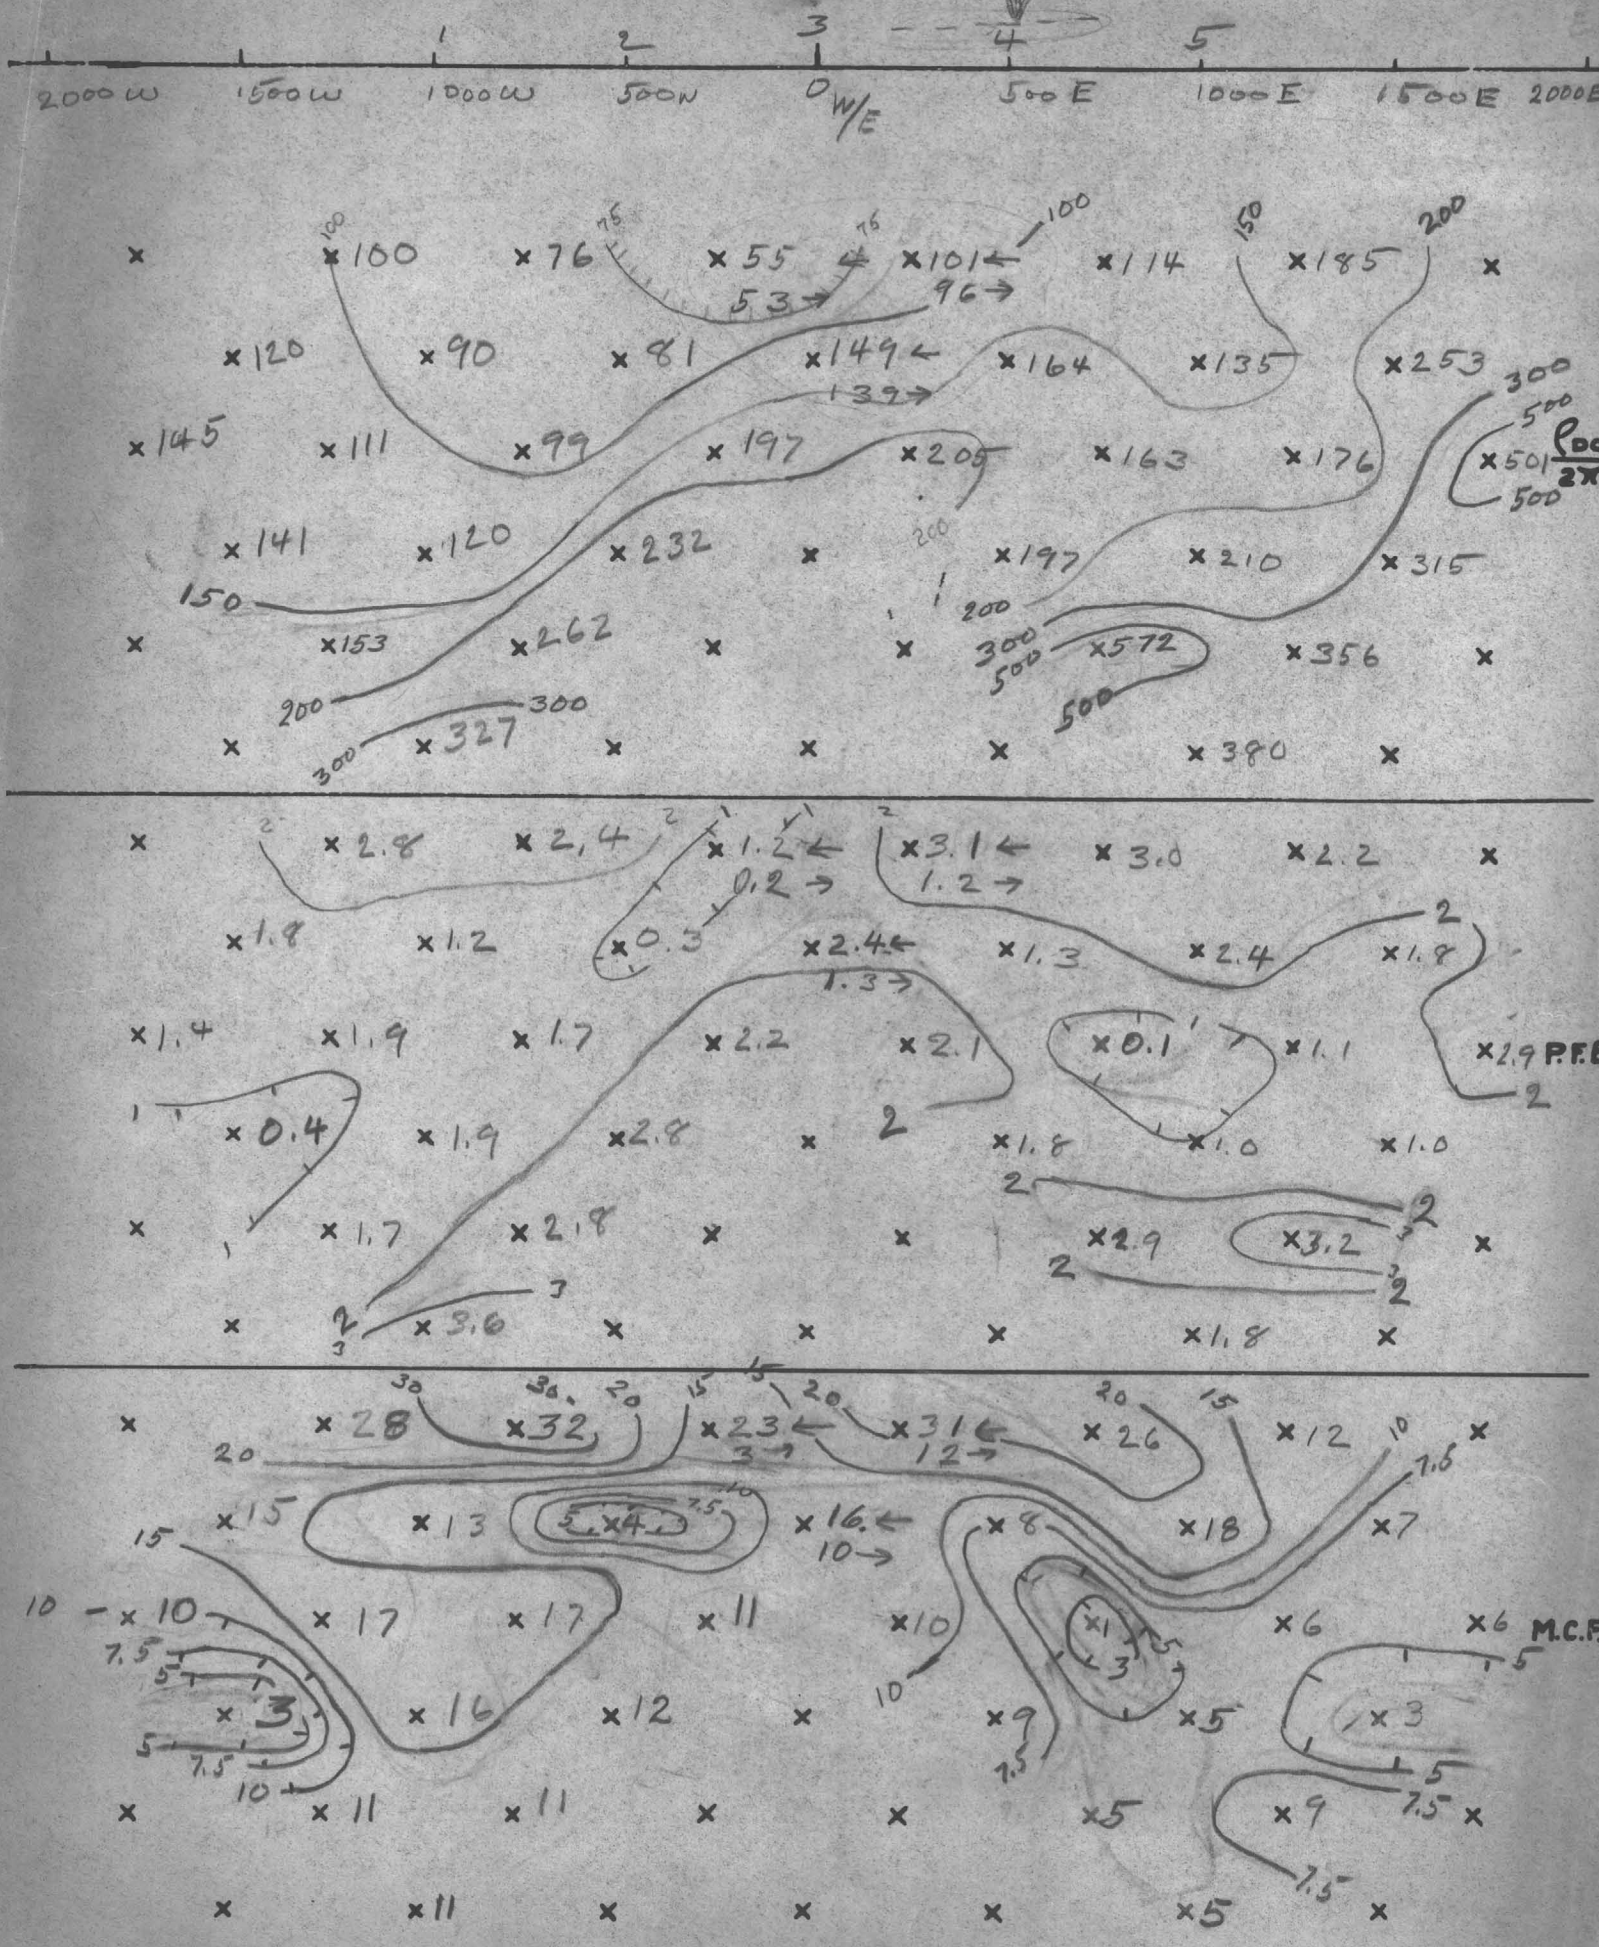 1 2 3 4 5
2000W 1500W 1000W 500W 0 W/E 500E 1000E 1500E 2000E
100 75 75 100 150 200
100 76 55 101← 114 185
53→ 96→
120 90 81 149← 164 135 253
139→ 300
500
145 111 99 197 205 163 176 501
500
200
141 120 232 197 210 315
150 200
153 262 300 572 356
500
200 300 500
300 327 380
2 2 1 1 2
2.8 2.4 1.2← 3.1← 3.0 2.2
0.2→ 1.2→
2
1.8 1.2 0.3 2.4← 1.3 2.4 1.8
1.3→
1
1.4 1.9 1.7 2.2 2.1 0.1 1.1 2.9 P.F.E
1 2 2
0.4 1.9 2.8 1.8 1.0 1.0
2 2
1 1.7 2.8 2.9 3.2 3
2 3
3 2
2 3.6 1.8
3
30 30 20 15 15 20 20 15
28 32 23← 31← 26 12 10
20 3→ 12→ 7.5
7.5 10
15 13 5 4 16← 8 18 7
15 10→
10 10 17 17 11 10 1 6 6 M.C.F.
7.5 5 3 5
5 10
3 16 12 9 5 3
5 7.5 7.5 5
10 7.5
11 11 5 9
7.5
11 5